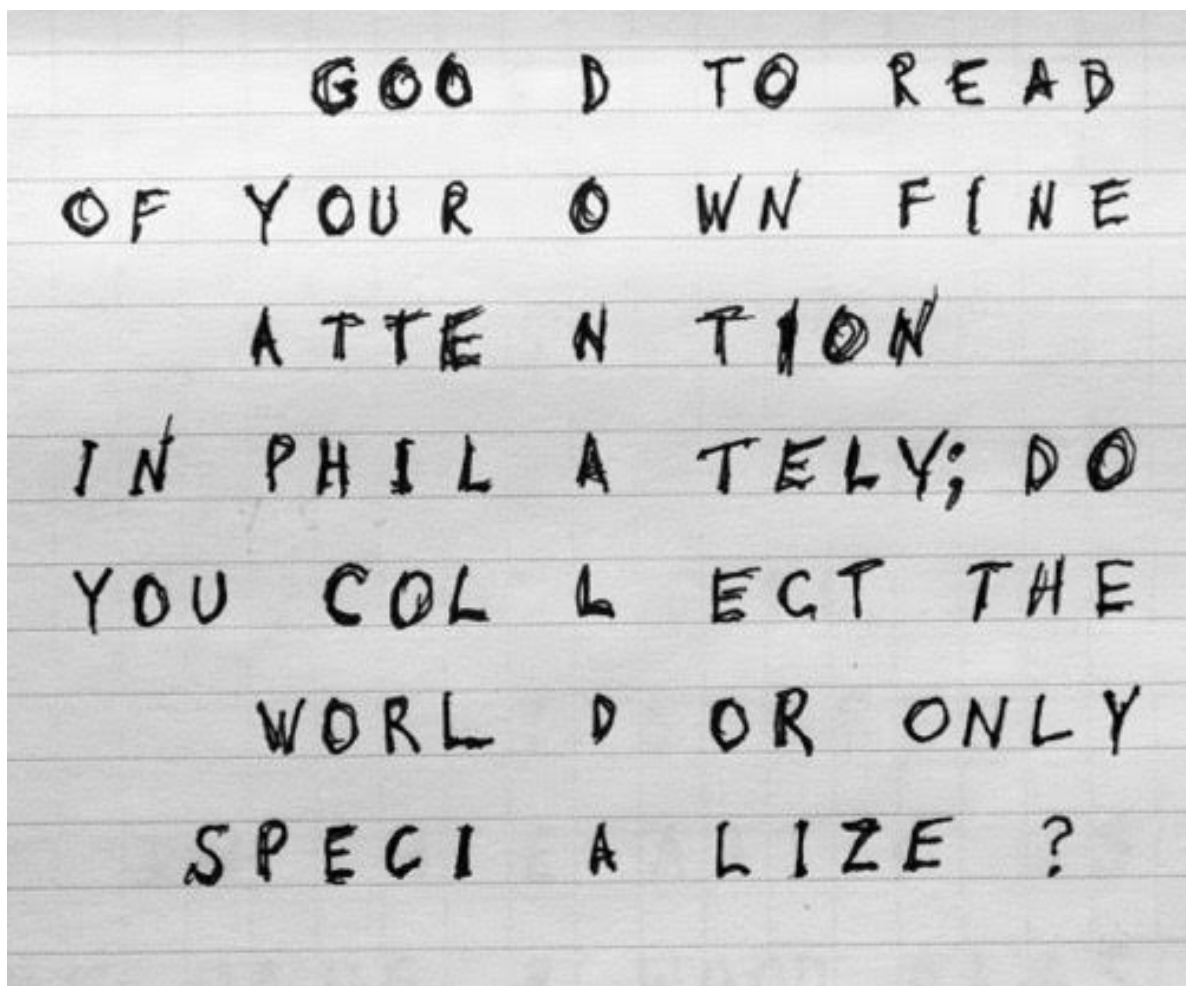 GOO D TO READ
OF YOUR O WN FINE
ATTE N TION
IN PHIL A TELY; DO
YOU COL L ECT THE
WORL D OR ONLY
SPECI A LIZE ?